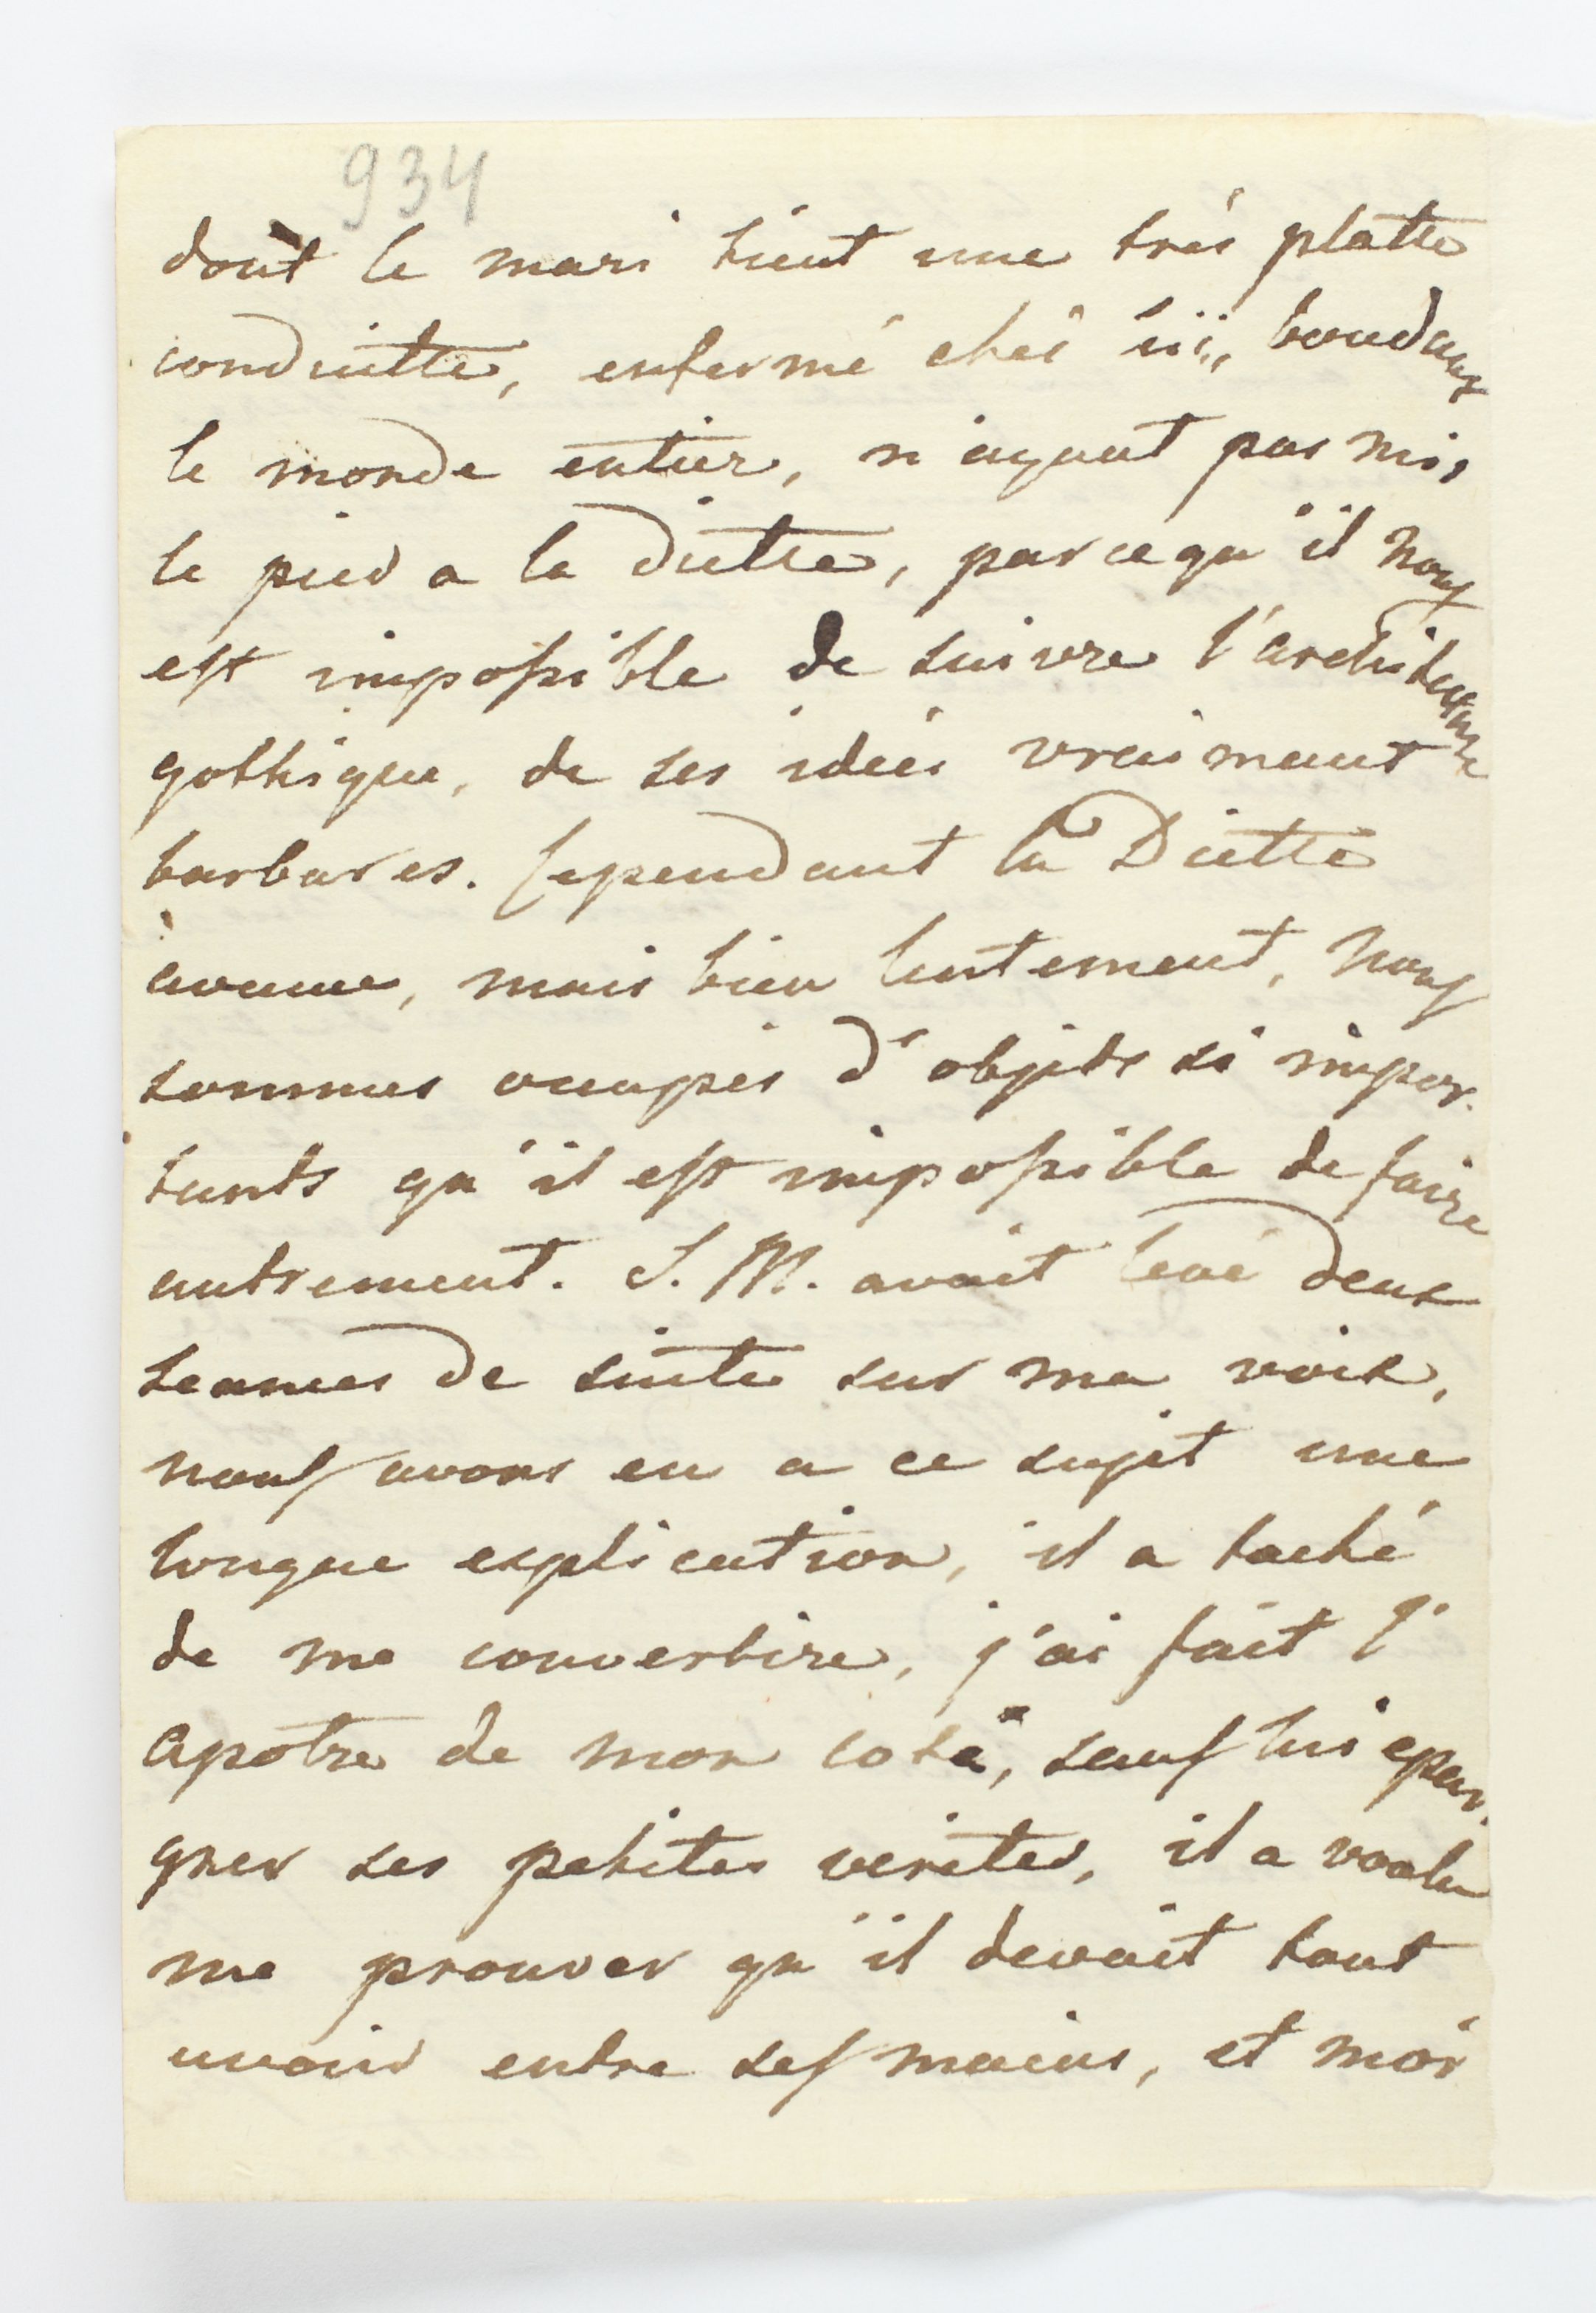 934
dont le mari tient une trés platte
conduitte, enfermé chéz lui,, boudant
le monde entier, n'ayant pas mis
le pied a la diette, parcequ'il nous
est impossible de suivre l'architecture
gothique, de ses idées vraimant
barbares. Cependant la Diette
avance, mais bien lentement, nous
sommes occupés d'objets si impor-
tants qu'il est impossible de faire
autrement. S. M. avait levé deux
seances de suite sur ma voix,
nous avons eu a ce sujet une
longue explication, il a taché
de me convertire, j'ai fait l'
apotre de mon coté, sauf lui epar-
gner ses petites verites, il a voulu
me prouver qu'il devait tout
avoir entre ses mains, et moi